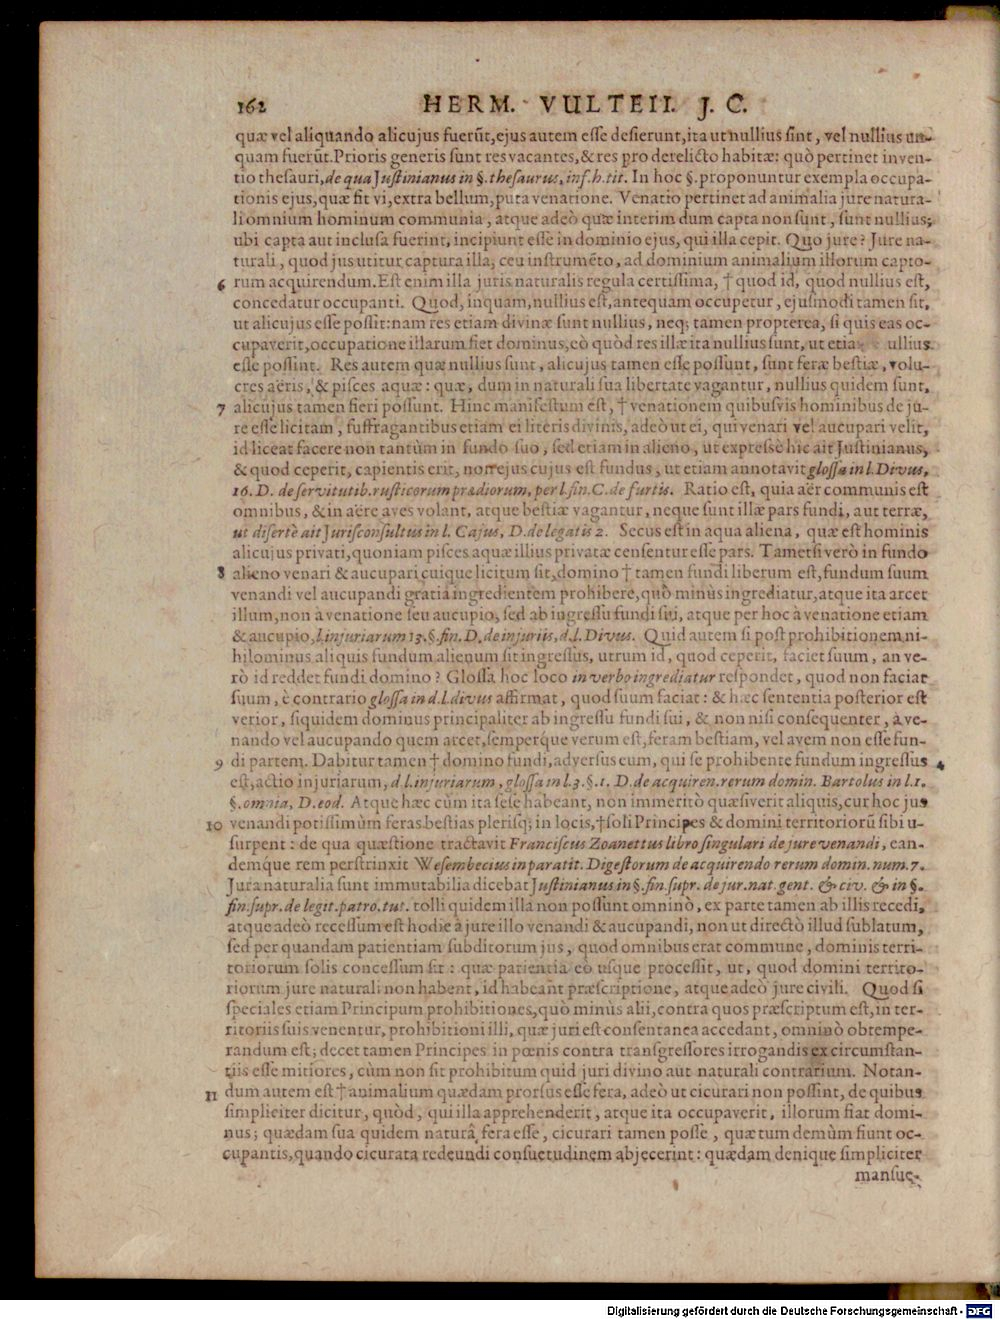 162 HERM. VULTEII. J. C.
quæ vel aliquando alicujus fuerũt, ejus autem esse desierunt, ita ut nullius sint, vel nullius un-
quam fuerũt. Prioris generis sunt res vacantes, & res pro derelicto habitæ: quò pertinet inven-
tio thesauri, de qua Justinianus in §. thesaurus, inf. h. tit. In hoc §. proponuntur exempla occupa-
tionis ejus, quæ fit vi, extra bellum, puta venatione. Venatio pertinet ad animalia jure natura-
li omnium hominum communia, atque adeò quæ interim dum capta non sunt, sunt nullius;
ubi capta aut inclusa fuerint, incipiunt esse in dominio ejus, qui illa cepit. Quo jure? Jure na-
turali, quod jus utitur captura illa, ceu instrumẽto, ad dominium animalium illorum capto-
6 rum acquirendum. Est enim illa juris naturalis regula certissima, † quod id, quod nullius est,
concedatur occupanti. Quod, inquam, nullius est, antequam occupetur, ejusmodi tamen sit,
ut alicujus esse possit: nam res etiam divinæ sunt nullius, neq; tamen propterea, si quis eas oc-
cupaverit, occupatione illarum fiet dominus, eò quòd res illæ ita nullius sunt, ut etia ullius
esse possint. Res autem quæ nullius sunt, alicujus tamen esse possunt, sunt feræ bestiæ, volu-
cres aëris, & pisces aquæ: quæ, dum in naturali sua libertate vagantur, nullius quidem sunt,
7 alicujus tamen fieri possunt. Hinc manifestum est, † venationem quibusvis hominibus de ju-
re esse licitam, suffragantibus etiam ei literis divinis, adeò ut ei, qui venari vel aucupari velit,
id liceat facere non tantùm in fundo suo, sed etiam in alieno, ut expressè hic ait Justinianus,
& quod ceperit, capientis erit, non ejus cujus est fundus, ut etiam annotavit glossa in l. Divus,
16. D. de servitutib. rusticorum prædiorum, per l. fin. C. de furtis. Ratio est, quia aër communis est
omnibus, & in aëre aves volant, atque bestiæ vagantur, neque sunt illæ pars fundi, aut terræ,
ut disertè ait Jurisconsultus in l. Cajus, D. de legatis 2. Secus est in aqua aliena, quæ est hominis
alicujus privati, quoniam pisces aquæ illius privatæ censentur esse pars. Tametsi verò in fundo
8 alieno venari & aucupari cuique licitum sit, domino † tamen fundi liberum est, fundum suum
venandi vel aucupandi gratiâ ingredientem prohibere, quò minùs ingrediatur, atque ita arcet
illum, non à venatione seu aucupio, sed ab ingressu fundi sui, atque per hoc à venatione etiam
& aucupio, l. injuriarum 13. §. fin. D. de injuriis, d. l. Divus. Quid autem si post prohibitionem ni-
hilominus aliquis fundum alienum sit ingressus, utrum id, quod ceperit, faciet suum, an ve-
rò id reddet fundi domino? Glossa hoc loco in verbo ingrediatur respondet, quod non faciat
suum, è contrario glossa in d. l. divus affirmat, quod suum faciat: & hæc sententia posterior est
verior, siquidem dominus principaliter ab ingressu fundi sui, & non nisi consequenter, à ve-
nando vel aucupando quem arcet, semperque verum est, feram bestiam, vel avem non esse fun-
9 di partem. Dabitur tamen † domino fundi, adversus eum, qui se prohibente fundum ingressus 4
est, actio injuriarum, d. l. injuriarum, glossa in l. 3. §. 1. D. de acquiren. rerum domin. Bartolus in l. 1.
§. omnia, D. eod. Atque hæc cùm ita sese habeant, non immeritò quæsiverit aliquis, cur hoc jus
10 venandi potissimùm feras bestias plerisq; in locis, † soli Principes & domini territoriorũ sibi u-
surpent: de qua quæstione tractavit Franciscus Zoanettus libro singulari de jure venandi, ean-
demque rem perstrinxit Wesembecius in paratit. Digestorum de acquirendo rerum domin. num. 7.
Jura naturalia sunt immutabilia dicebat Justinianus in §. fin. supr. de jur. nat. gent. & civ. & in §.
fin. supr. de legit. patro. tut. tolli quidem illa non possunt omninò, ex parte tamen ab illis recedi,
atque adeò recessum est hodie à jure illo venandi & aucupandi, non ut directò illud sublatum,
sed per quandam patientiam subditorum jus, quod omnibus erat commune, dominis terri-
toriorum solis concessum sit: quæ patientia eò usque processit, ut, quod domini territo-
riorum jure naturali non habent, id habeant præscriptione, atque adeò jure civili. Quod si
speciales etiam Principum prohibitiones, quò minùs alii, contra quos præscriptum est, in ter-
ritoriis suis venentur, prohibitioni illi, quæ juri est consentanea accedant, omninò obtempe-
randum est; decet tamen Principes in pœnis contra transgressores irrogandis ex circumstan-
tiis esse mitiores, cùm non sit prohibitum quid juri divino aut naturali contrarium. Notan-
11 dum autem est † animalium quædam prorsus esse fera, adeò ut cicurari non possint, de quibus
simpliciter dicitur, quòd, qui illa apprehenderit, atque ita occupaverit, illorum fiat domi-
nus; quædam sua quidem naturâ fera esse, cicurari tamen posse, quæ tum demùm fiunt oc-
cupantis, quando cicurata redeundi consuetudinem abjecerint: quædam denique simpliciter
mansue-
Digitalisierung gefördert durch die Deutsche Forschungsgemeinschaft - DFG